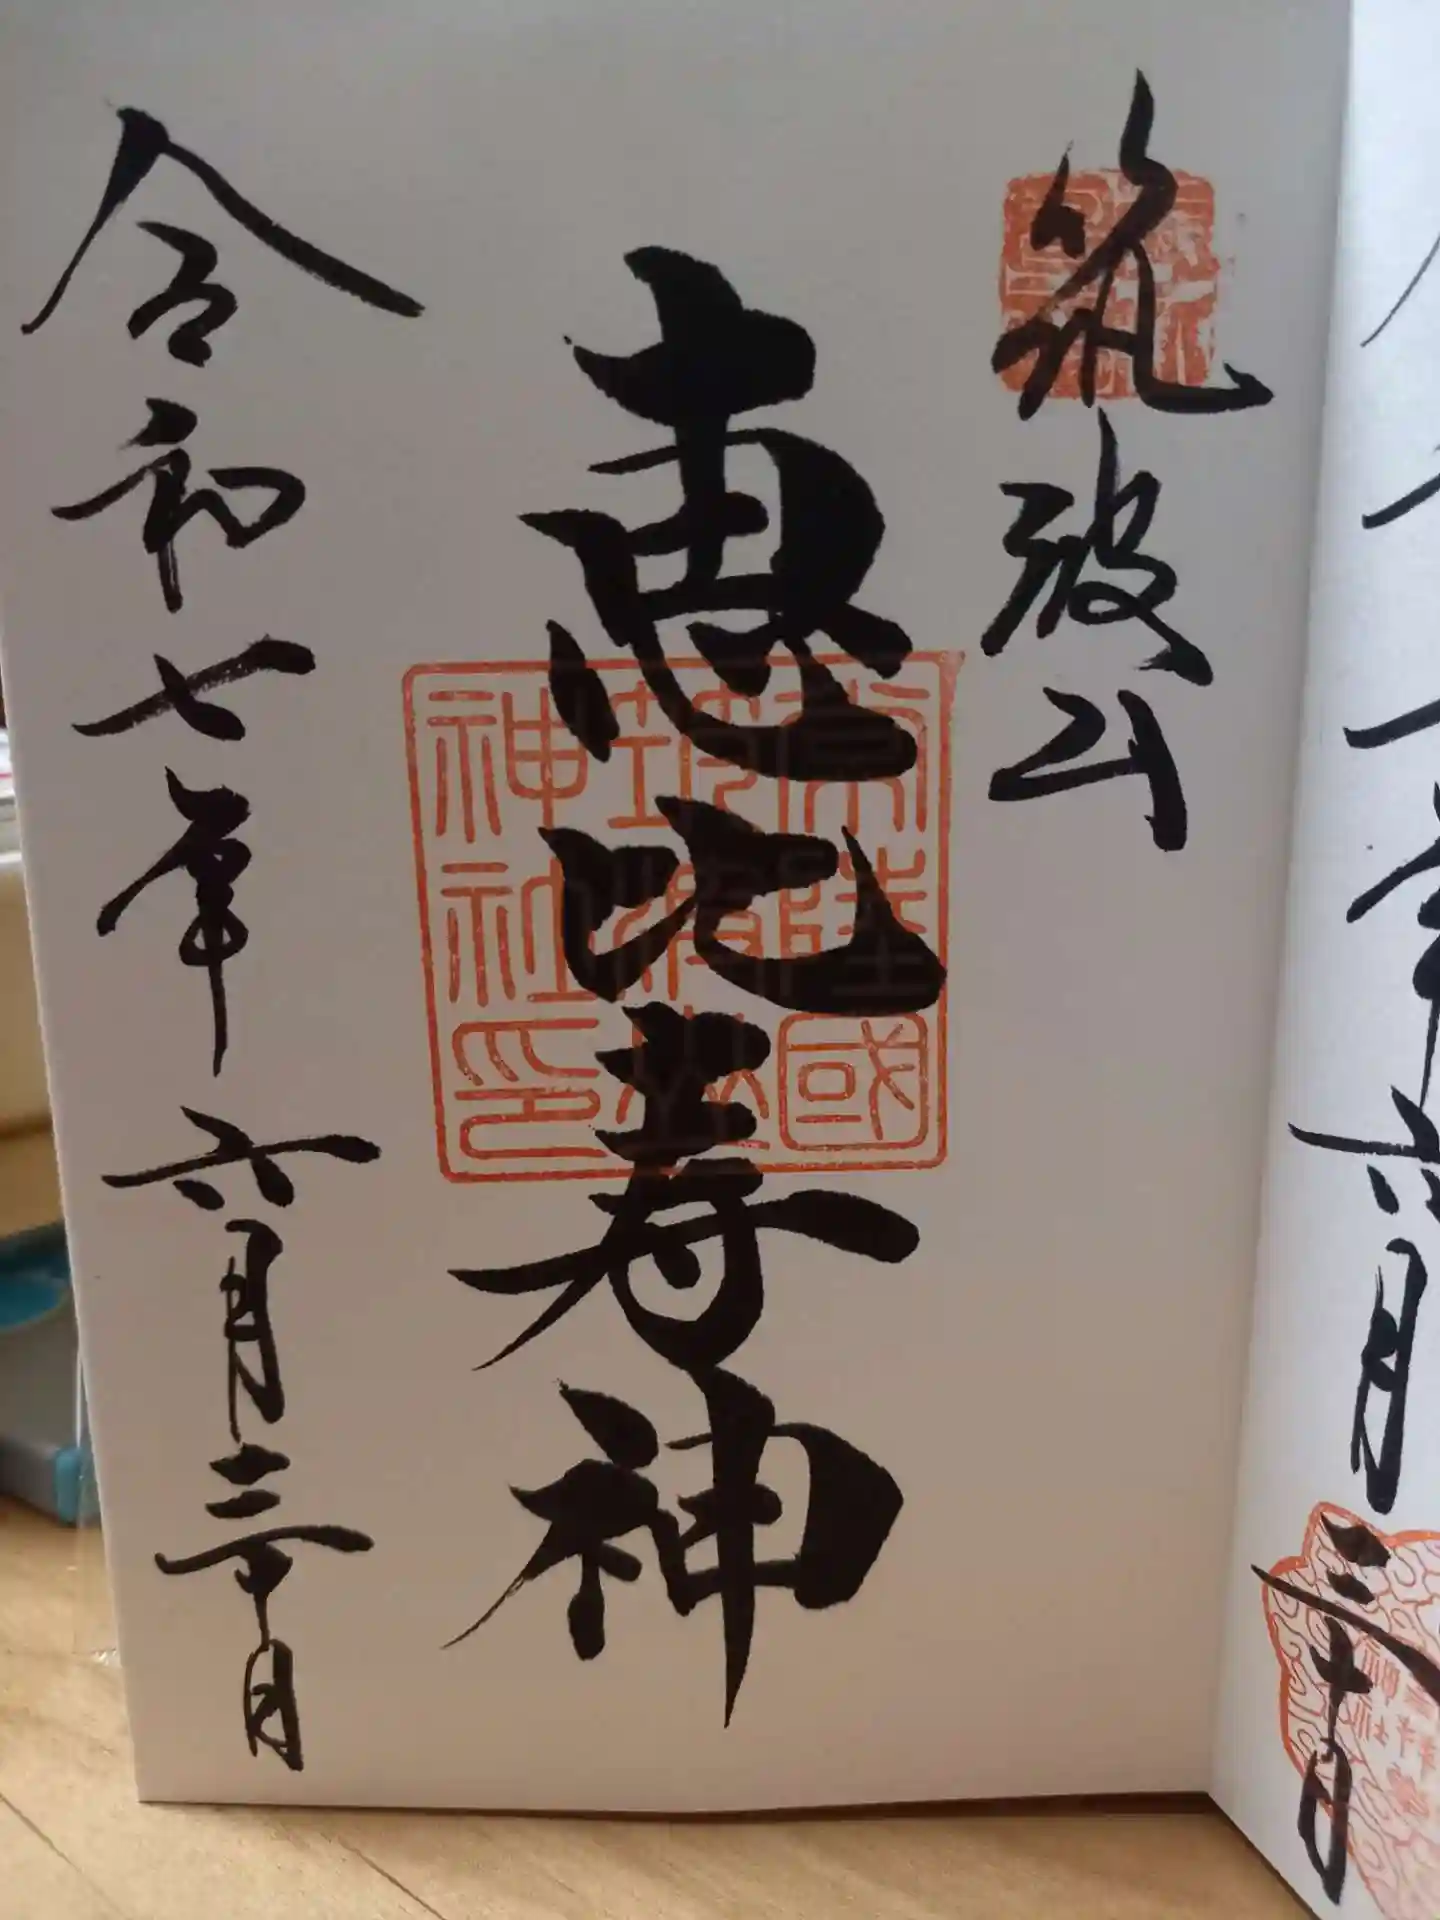 筑波山
恵比寿神
常陸國
筑波山
神社印
令和七年六月三十日
年六月三十日